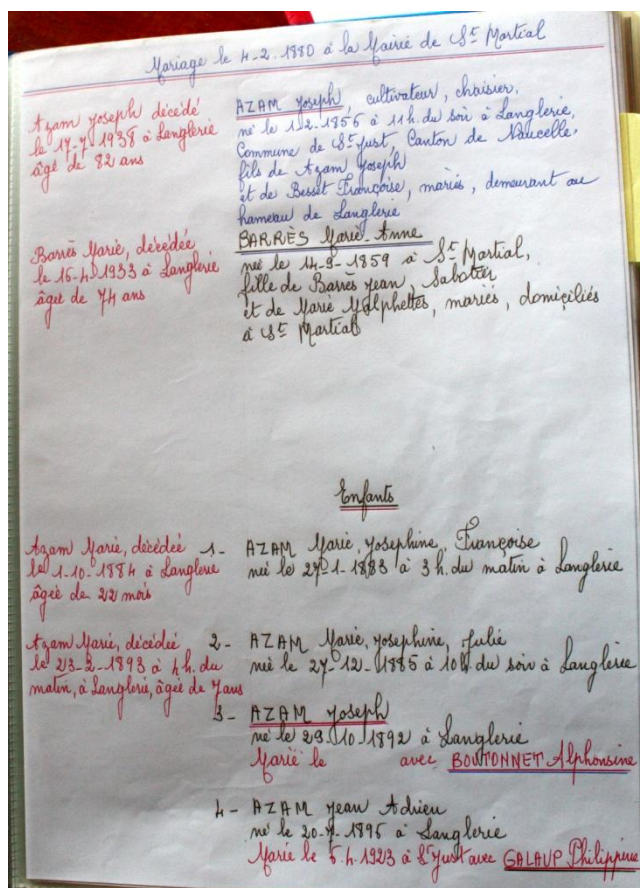 Mariage le 4-2-1880 à la Mairie de St Martial
Azam Joseph décédé
le 17-7-1938 à Langlerie
âgé de 82 ans
AZAM Joseph, cultivateur, chaisier,
né le 1-2-1856 à 11h. du soir à Langlerie,
Commune de St Just, Canton de Naucelle,
fils de Azam Joseph
et de Besset Françoise, mariés, demeurant au
hameau de Langlerie
Barrès Marie, décédée
le 15-4-1933 à Langlerie
âgée de 74 ans
BARRÈS Marie-Anne
née le 14-9-1859 à St Martial,
fille de Barrès Jean, Sabotier
et de Marie Malphettes, mariés, domiciliés
à St Martial
Enfants
Azam Marie, décédée
le 1-10-1884 à Langlerie
âgée de 22 mois
1- AZAM Marie, Josephine, Françoise
née le 27-1-1883 à 3h. du matin à Langlerie
Azam Marie, décédée
le 23-2-1893 à 4h. du
matin, à Langlerie, âgée de 7 ans
2- AZAM Marie, Josephine, Julie
née le 27-12-1885 à 10h du soir à Langlerie
3- AZAM Joseph
né le 29-10-1892 à Langlerie
Marié le avec BOUTONNET Alphonsine
4- AZAM Jean Adrien
né le 20-7-1895 à Langlerie
Marié le 5.4.1923 à St Just avec GALAUP Philippine